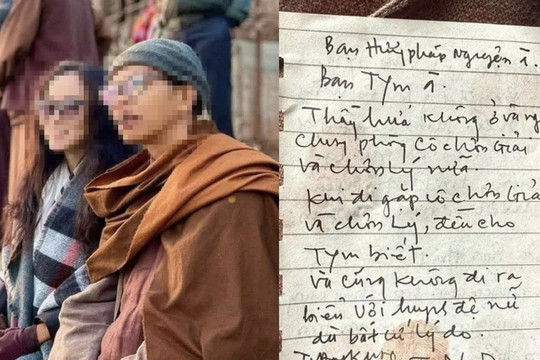 Bạn Huý pháp Nguyện à.
Bạn Tym à.
Thầy hứa không ở và ng
chung phòng cô chơn Giải
và chơn Lý nữa.
Khi đi gặp cô chơn Giả
và chơn Lý, đều cho
Tym biết.
và cũng không đi ra
biển với huynh đệ nữ
dù bất cứ lý do.